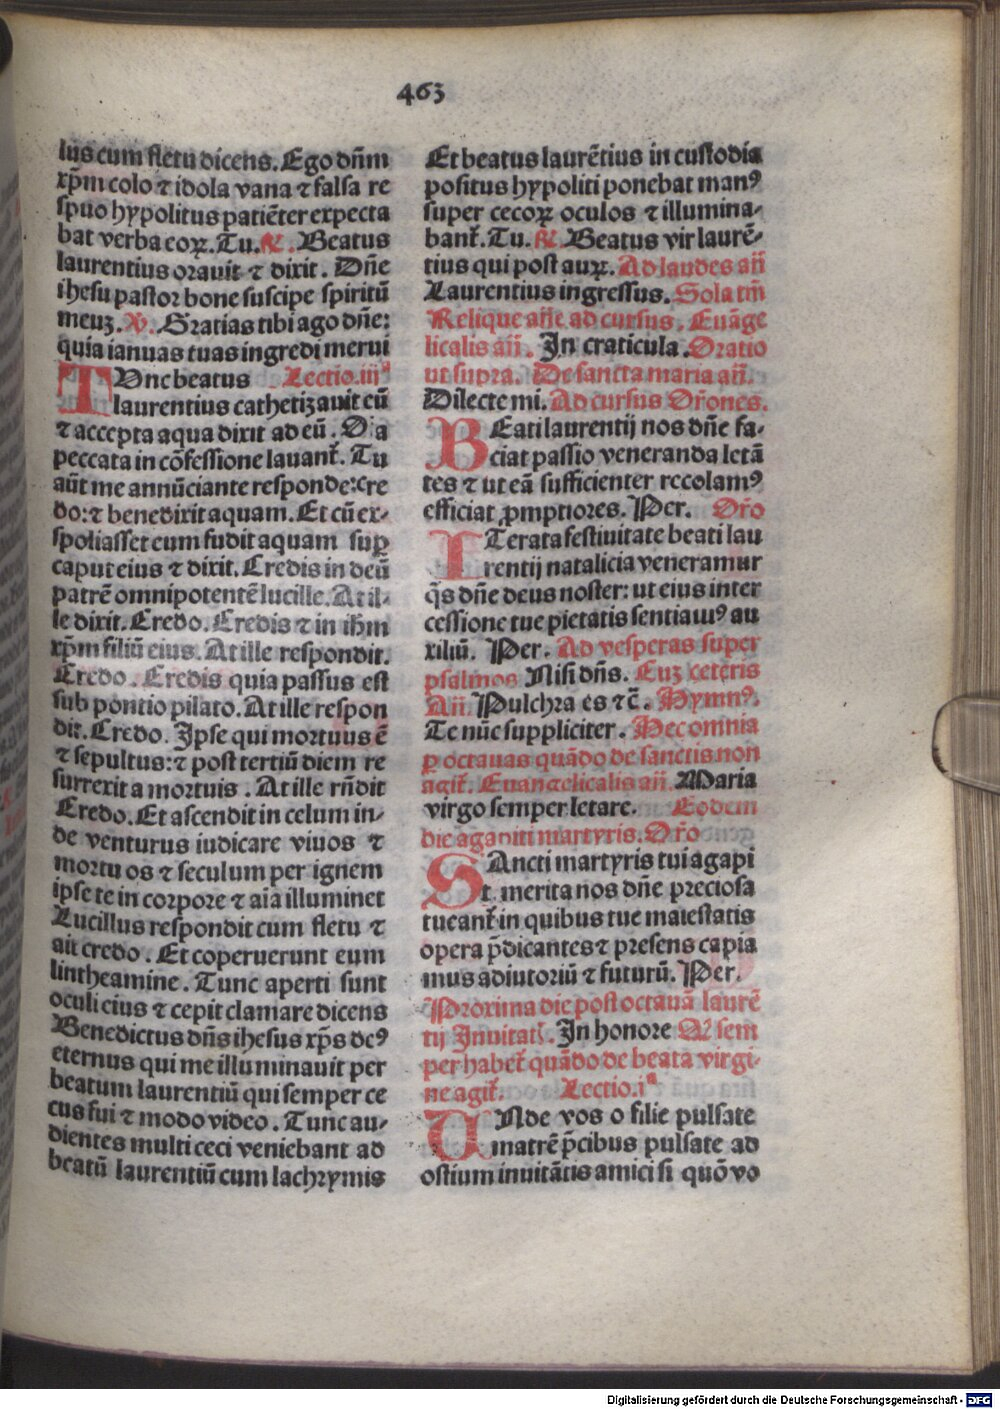 463
lus cum fletu dicens. Ego dn̄m
xp̄m colo ⁊ idola vana ⁊ falsa re
spuo hypolitus patiēter expecta
bat verba eoꝝ. Tu. ℟. Beatus
laurentius orauit ⁊ dixit. Dn̄e
ihesu pastor bone suscipe spiritū
meuꝫ. ℣. Gratias tibi ago dn̄e:
quia ianuas tuas ingredi merui
TVnc beatus Lectio.iijᵃ
laurentius cathetizauit eū
⁊ accepta aqua dixit ad eū. Oīa
peccata in cōfessione lauant̄. Tu
aūt me annūciante responde: cre
do: ⁊ benedixit aquam. Et cū ex-
spoliasset eum fudit aquam suꝑ
caput eius ⁊ dixit. Credis in deū
patrē omnipotentē lucille. At il-
le dixit. Credo. Credis ⁊ in ih̄m
xp̄m filiū eius. At ille respondit.
Credo. Credis quia passus est
sub pontio pilato. At ille respon
dit. Credo. Ipse qui mortuus ē
⁊ sepultus: ⁊ post tertiū diem re
surrexit a mortuis. At ille rn̄dit
Credo. Et ascendit in celum in-
de venturus iudicare viuos ⁊
mortu os ⁊ seculum per ignem
ipse te in corpore ⁊ aīa illuminet
Lucillus respondit cum fletu ⁊
ait credo. Et coperuerunt eum
lintheamine. Tunc aperti sunt
oculi eius ⁊ cepit clamare dicens
Benedictus dn̄s ihesus xp̄s deꝰ
eternus qui me illuminauit per
beatum laurentiū qui semper ce
cus fui ⁊ modo video. Tunc au-
dientes multi ceci veniebant ad
beatū laurentiū cum lachrymis
Et beatus laurētius in custodia
positus hypoliti ponebat manꝰ
super cecoꝝ oculos ⁊ illumina-
bant̄. Tu. ℟. Beatus vir laurē-
tius qui post auꝝ. Ad laudes an̄
Laurentius ingressus. Sola tm̄
Relique an̄e ad cursus. Euāge
licalis an̄. In craticula. Oratio
ut supra. De sancta maria an̄.
Dilecte mi. Ad cursus Or̄ones.
BEati laurentij nos dn̄e fa-
ciat passio veneranda letā
tes ⁊ ut eā sufficienter recolamꝰ
efficiat ꝓmptiores. Per. Or̄o
ITerata festiuitate beati lau
rentij natalicia veneramur
q̄s dn̄e deus noster: ut eius inter
cessione tue pietatis sentiamꝰ au
xiliū. Per. Ad vesperas super
psalmos Nisi dn̄s. Cuꝫ ceteris
An̄. Pulchra es ⁊ c̄. Hymnꝰ.
Te nūc suppliciter. Hec omnia
ꝑ octauas quādo de sanctis non
agit̄. Euangelicalis an̄. Maria
virgo semper letare. Eodem
die agapiti martyris. Or̄o
SAncti martyris tui agapi
ti merita nos dn̄e preciosa
tueant̄ in quibus tue maiestatis
opera p̄dicantes ⁊ presens capia
mus adiutoriū ⁊ futurū. Per.
Proxima die post octauā laurē
tij Inuitat̄. In honore Qd̄ sem
per habet̄ quādo de beata virgi-
ne agit̄. Lectio.iᵃ
UNde vos o filie pulsate
matrē p̄cibus pulsate ad
ostium inuitātis amici si quō vo
Digitalisierung gefördert durch die Deutsche Forschungsgemeinschaft - DFG